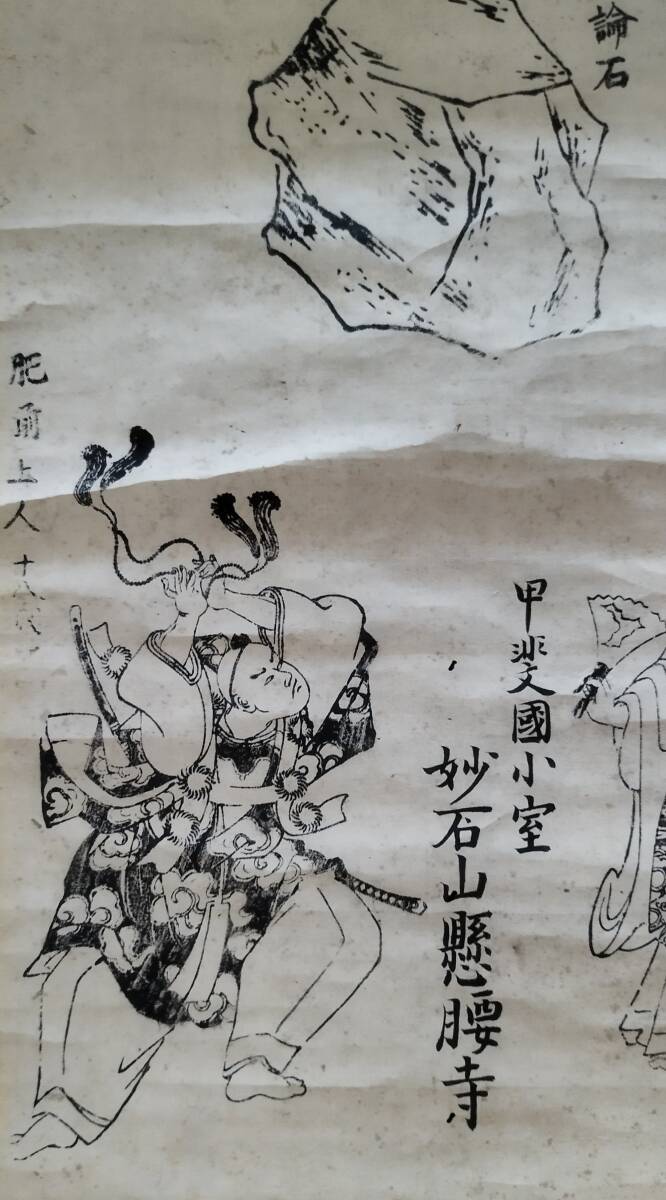 論石
甲斐國小室
妙石山懸腰寺
肥前上人十八